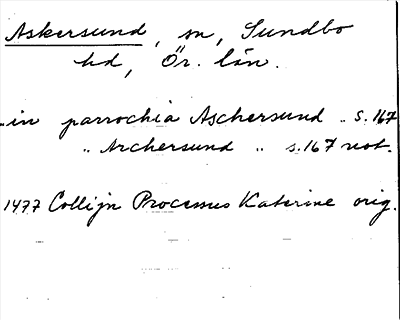 Askersund, sn, Sundbo
hd, Ör. län.
"in parrochia Aschersund" s. 167
" Archersund " s. 167 not.
1477 Collijn Processus Katerine orig.